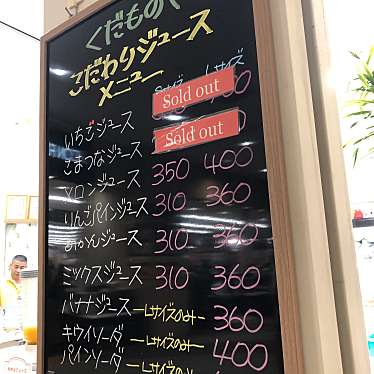 くだもの
こだわりジュース
メニュー
Sサイズ Lサイズ
いちごジュース Sold out
こまつなジュース Sold out
メロンジュース 350 400
りんごパインジュース 310 360
みかんジュース 310 360
ミックスジュース 310 360
バナナジュース ーLサイズのみー 360
キウイソーダ ーLサイズのみー 400
パインソーダ ーLサイズのみ